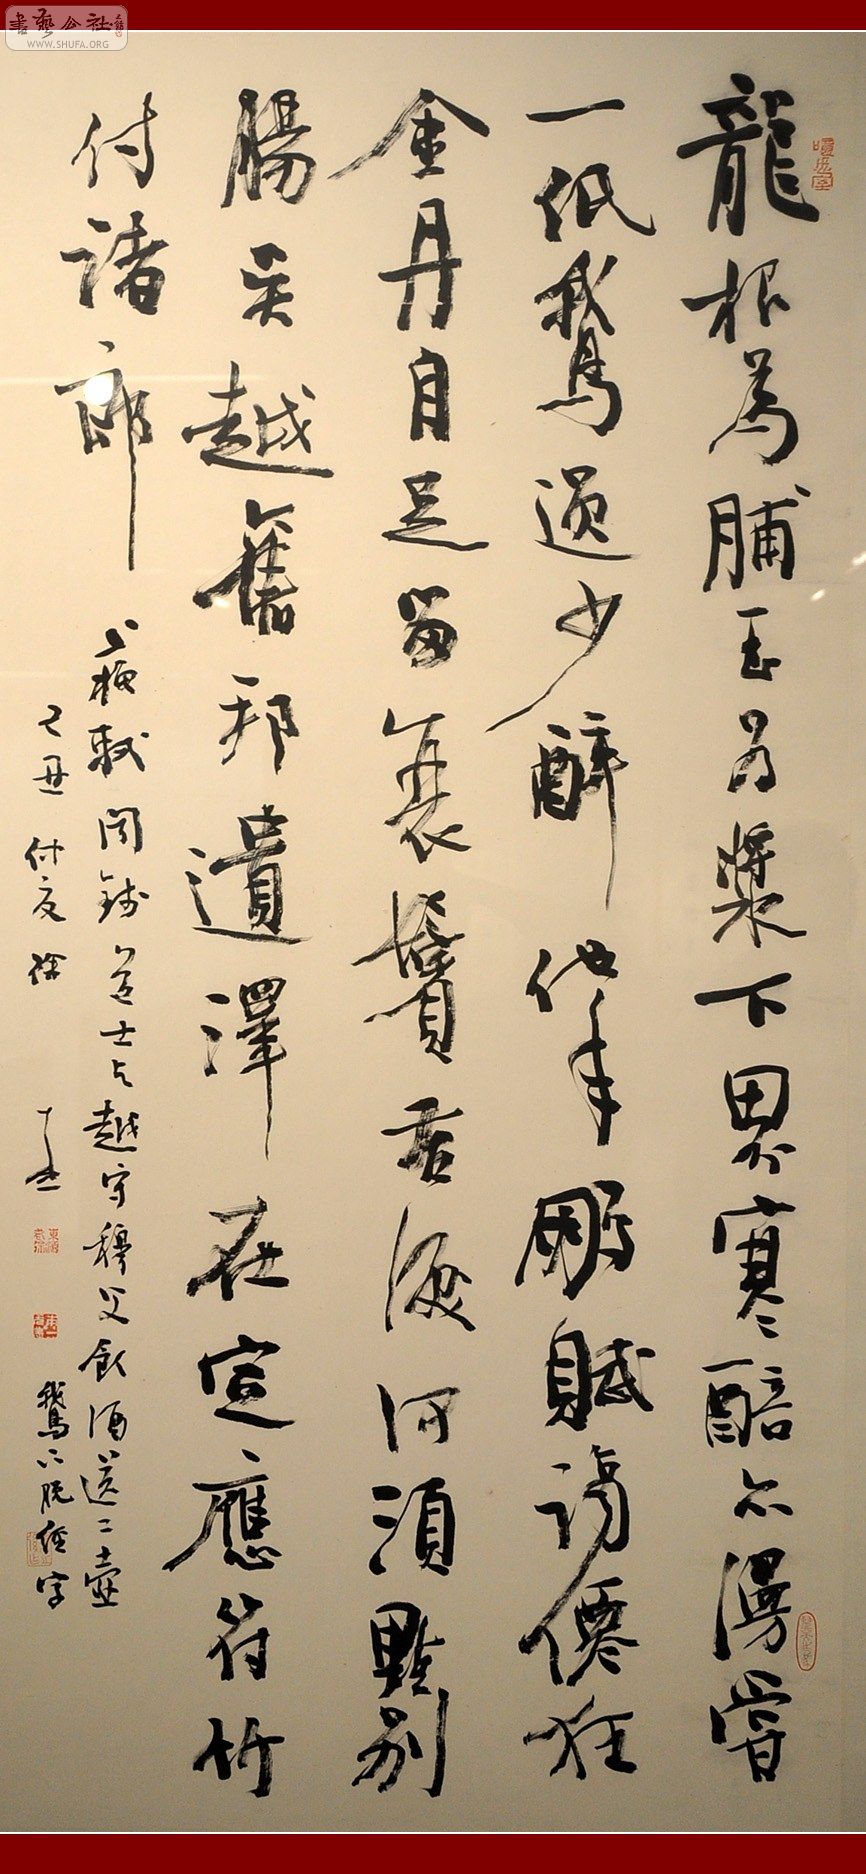 龍根為脯玉為漿下界寒醅亦漫嘗
一紙鵝逸少醉他年鵬賦謫僊狂
金丹自足留衰鬢苦淚何須點別
腸吳越舊邦遺澤在定應符竹
付諸郎
蘇軾聞錢道士與越守穆父飲酒送二壺
己丑仲夏徐
鵝下脫經字
書藝公社
WWW.SHUFA.ORG